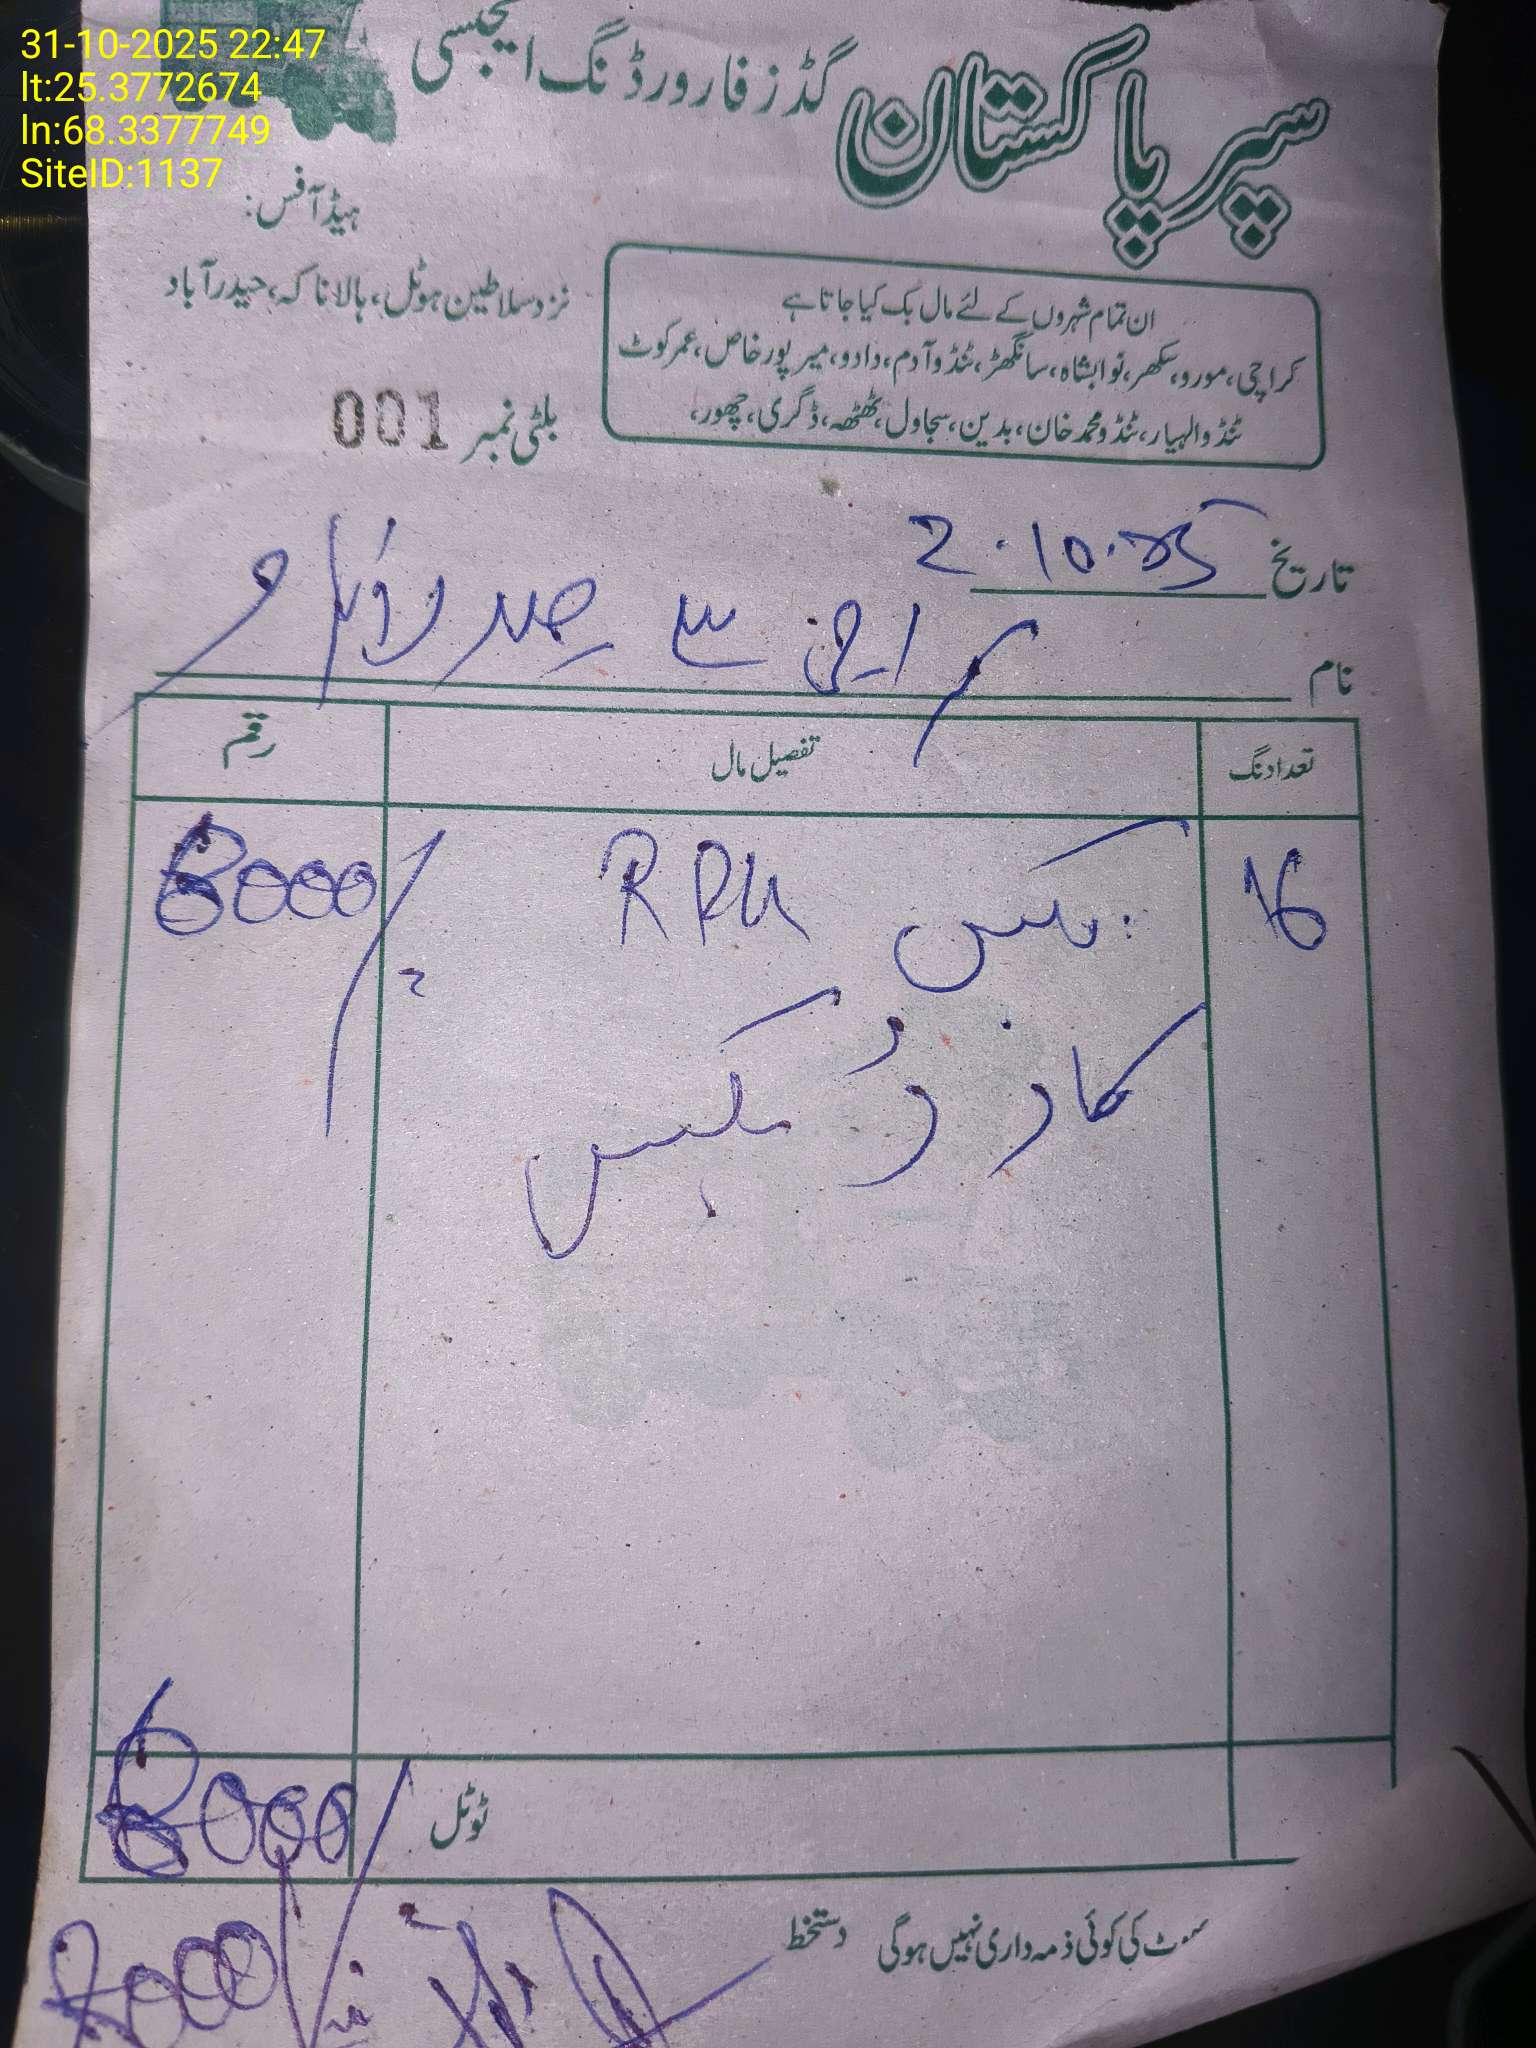 31-10-2025 22:47
lt:25.3772674
ln:68.3377749
SiteID:1137
سپر پاکستان گڈز فارورڈنگ ایجنسی
ہیڈ آفس:
نزد سلاطین ہوٹل، ہالا ناکہ، حیدرآباد
ان تمام شہروں کے لئے مال بک کیا جاتا ہے
کراچی، مورو، سکھر، نوابشاہ، سانگھڑ، ٹنڈوآدم، دادو، میرپورخاص، عمرکوٹ
ٹنڈوالہیار، ٹنڈومحمدخان، بدین، سجاول، ٹھٹھہ، ڈگری، چھور،
بلٹی نمبر 001
تاریخ 2.10.25
نام
کراچی سے
تعداد نگ تفصیل مال رقم
16 بکس RRU
بکس
ٹوٹل
کی کوئی ذمہ داری نہیں ہوگی دستخط